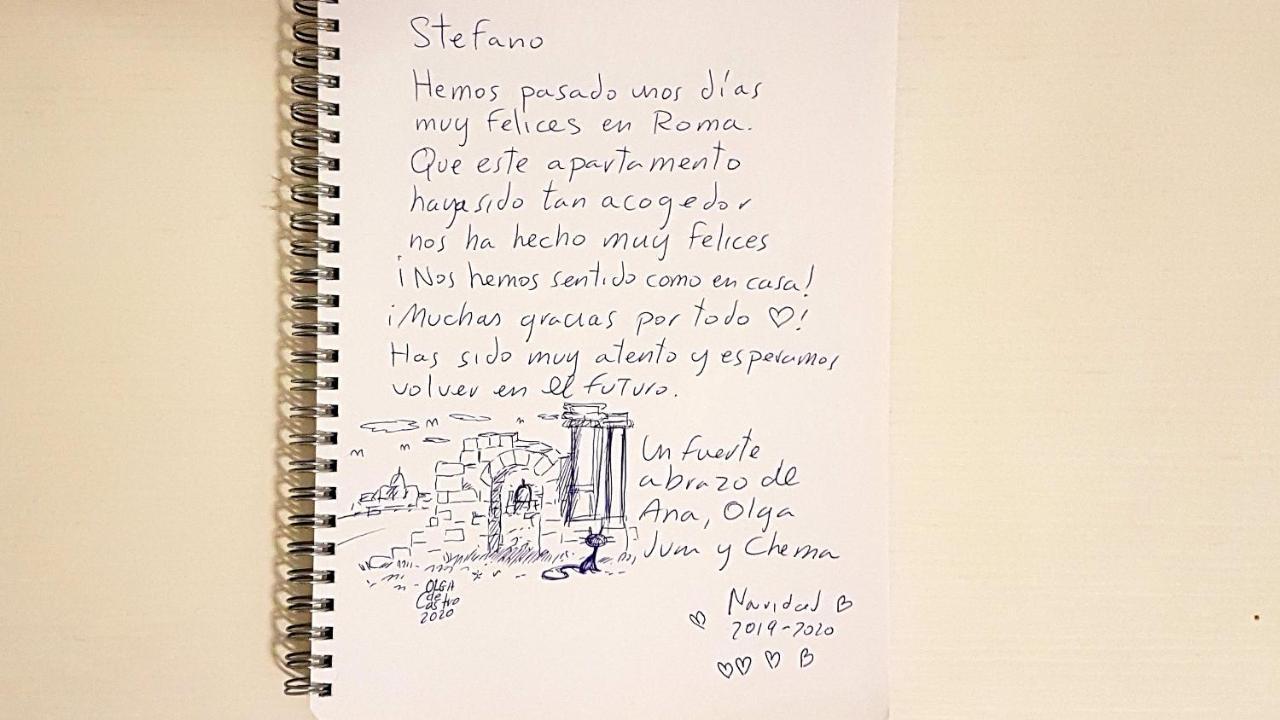 Stefano
Hemos pasado unos días
muy felices en Roma.
Que este apartamento
haya sido tan acogedor
nos ha hecho muy felices
¡Nos hemos sentido como en casa!
¡Muchas gracias por todo ♡!
Has sido muy atento y esperamos
volver en el futuro.
Un fuerte
abrazo de
Ana, Olga
Juan y Chema
Navidad
2019-2020
OLGA
de
Castro
2020